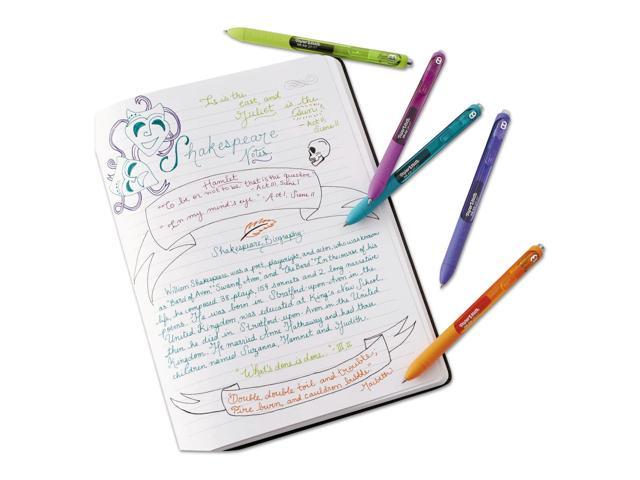 It is the
east, and
Juliet is the
Sun!
- Act II,
Scene II
Shakespeare
Notes
Hamlet
"To be or not to be that is the question"
- Act III, Scene I
"In my mind's eye" - Act I, Scene II
Shakespeare Biography:
William Shakespeare was a poet, playwright, and actor, who was known
as "Bard of Avon," "Swan of Avon," and "The Bard." In the verse of his
life, he composed 38 plays, 154 sonnets and 2 long narrative
poems. He was born in Stratford-upon-Avon in the
United Kingdom, was educated at King's new School.
then he died in Stratford-upon-Avon in the United
Kingdom. He married Anne Hathaway and had three
children named Suzanne, Hamnet and Judith.
"What's done is done." - III.II
"Double, double toil and trouble,
Fire burn, and cauldron bubble"
- Macbeth
Paper Mate
Paper Mate
Paper Mate
Paper Mate
Paper Mate